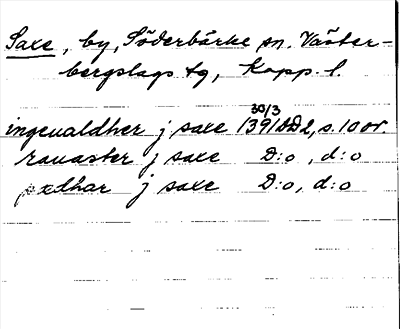 Saxe, by, Söderbärke sn. Väster-
bergslags tg, Kopp. l.
30/3
ingeualdher j saxe 1391 SD2, s. 10 or.
rauaster j saxe D:o, d:o
j saxe D:o, d:o